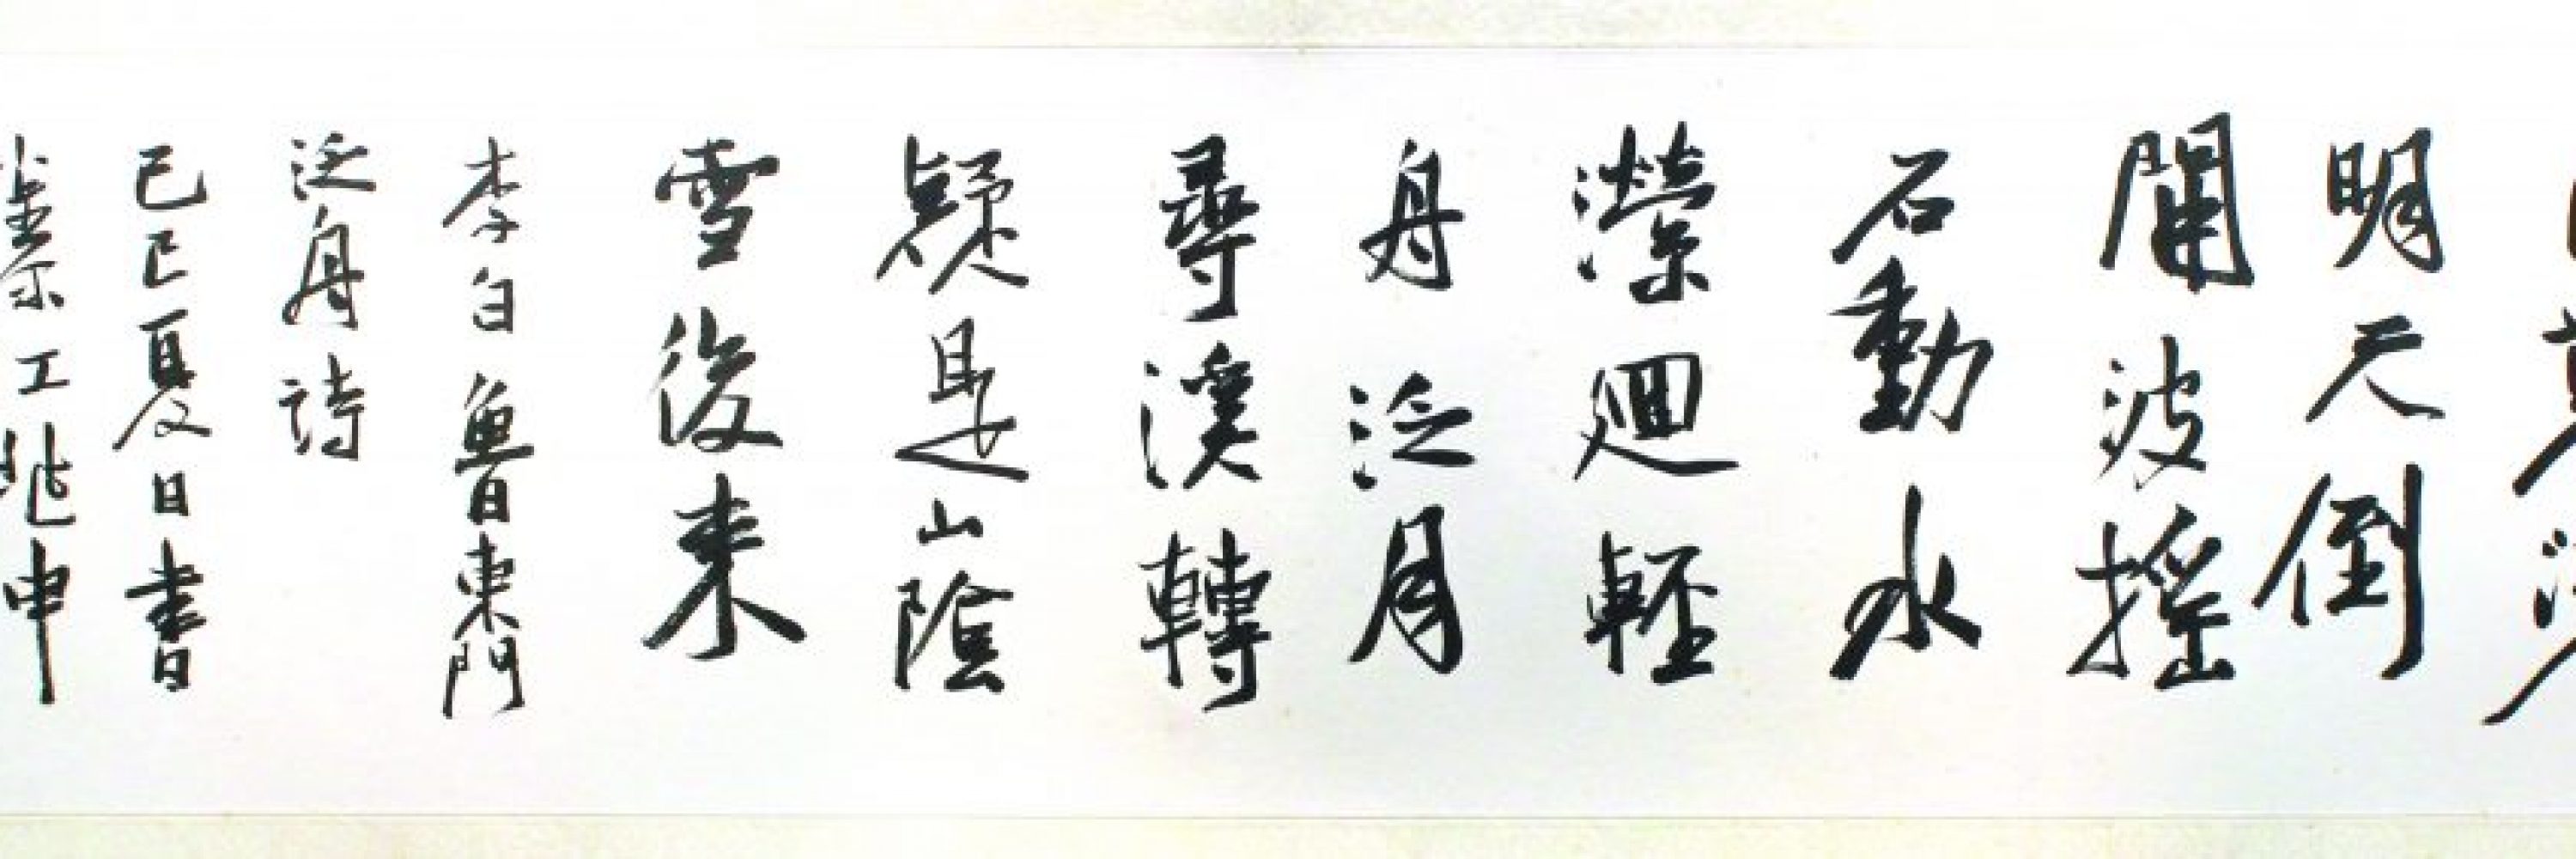 明天倒
開波搖
石動水
瀠廻輕
舟泛月
尋溪轉
疑是山陰
雪後来
李白魯東門
泛舟詩
己巳夏日書
兆申